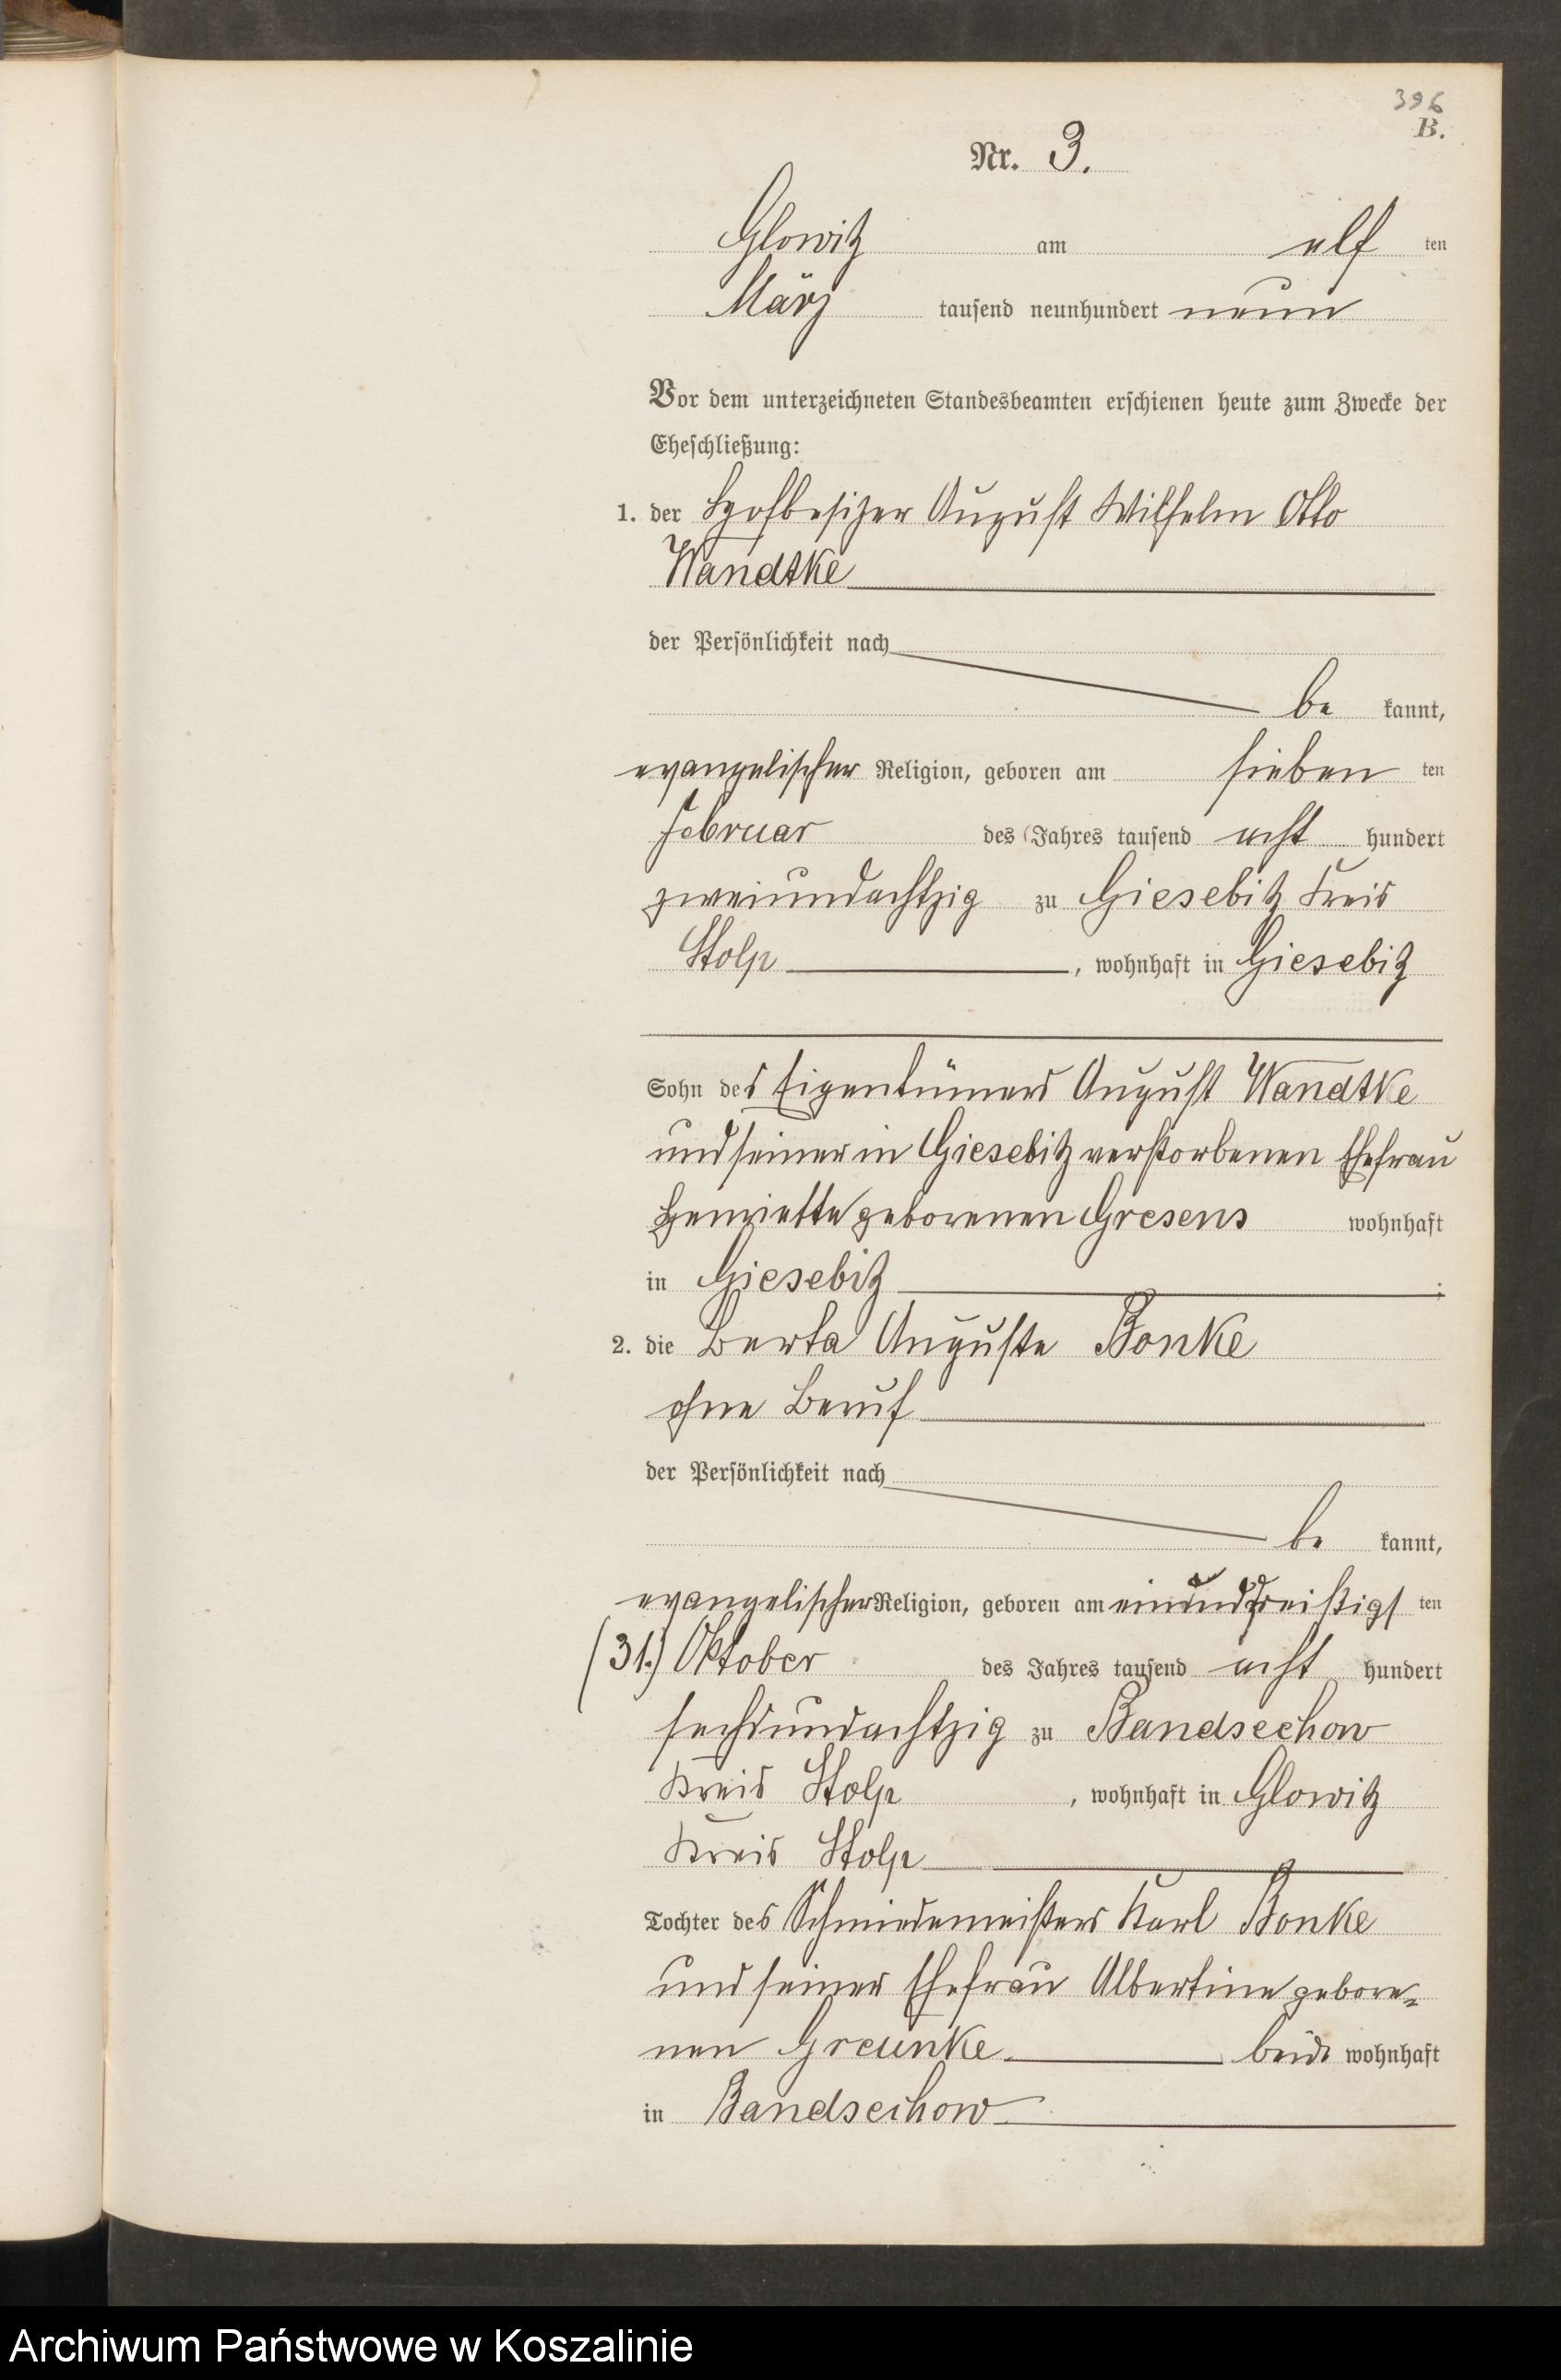 396
B.
Nr. 3.
Glowitz am elf ten
März tausend neunhundert neun
Vor dem unterzeichneten Standesbeamten erschienen heute zum Zwecke der
Eheschließung:
1. der Hofbesitzer August Wilhelm Otto
Wandtke
der Persönlichkeit nach
be kannt,
evangelischer Religion, geboren am sieben ten
Februar des Jahres tausend acht hundert
zweiundachtzig zu Giesebitz Kreis
Stolp, wohnhaft in Giesebitz
Sohn des Eigentümers August Wandtke
und seiner in Giesebitz verstorbenen Ehefrau
Henriette geborenen Gresens wohnhaft
in Giesebitz ;
2. die Berta Auguste Bonke
ohne Beruf
der Persönlichkeit nach
be kannt,
evangelischer Religion, geboren am einunddreißigs ten
(31.) Oktober des Jahres tausend acht hundert
sechsundachtzig zu Bandsechow
Kreis Stolp, wohnhaft in Glowitz
Kreis Stolp
Tochter des Schmiedemeisters Karl Bonke
und seiner Ehefrau Albertine gebore-
nen Greunke beide wohnhaft
in Bandsechow
Archiwum Państwowe w Koszalinie